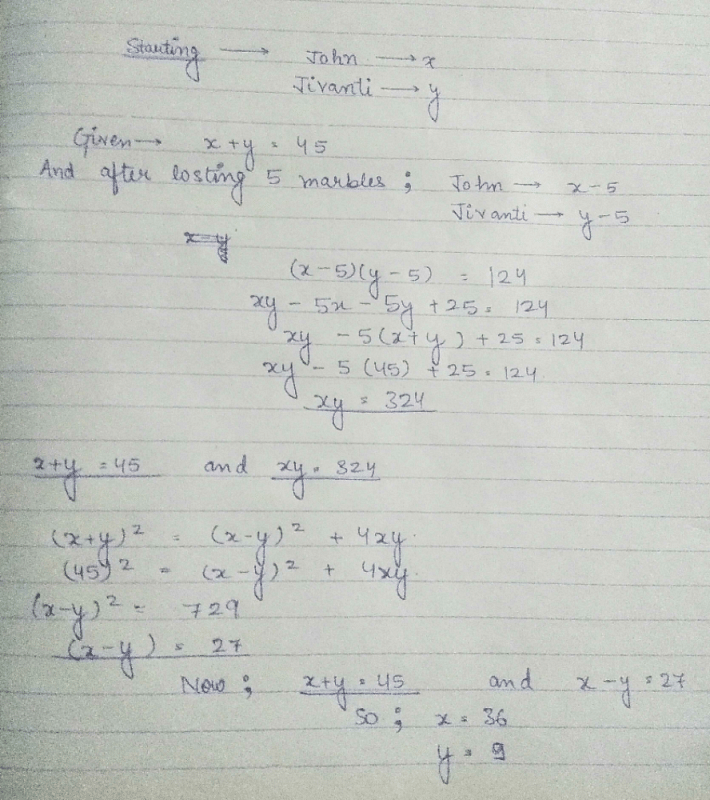 Starting → John → x
Jivanti → y
Given → x + y = 45
And after losting 5 marbles ; John → x - 5
Jivanti → y - 5
(x-5)(y-5) = 124
xy - 5x - 5y + 25 = 124
xy - 5(x+y) + 25 = 124
xy - 5(45) + 25 = 124
xy = 324
x+y = 45 and xy = 324
(x+y)² = (x-y)² + 4xy
(45)² = (x-y)² + 4xy
(x-y)² = 729
(x-y) = 27
Now ; x+y = 45 and x-y = 27
So ; x = 36
y = 9